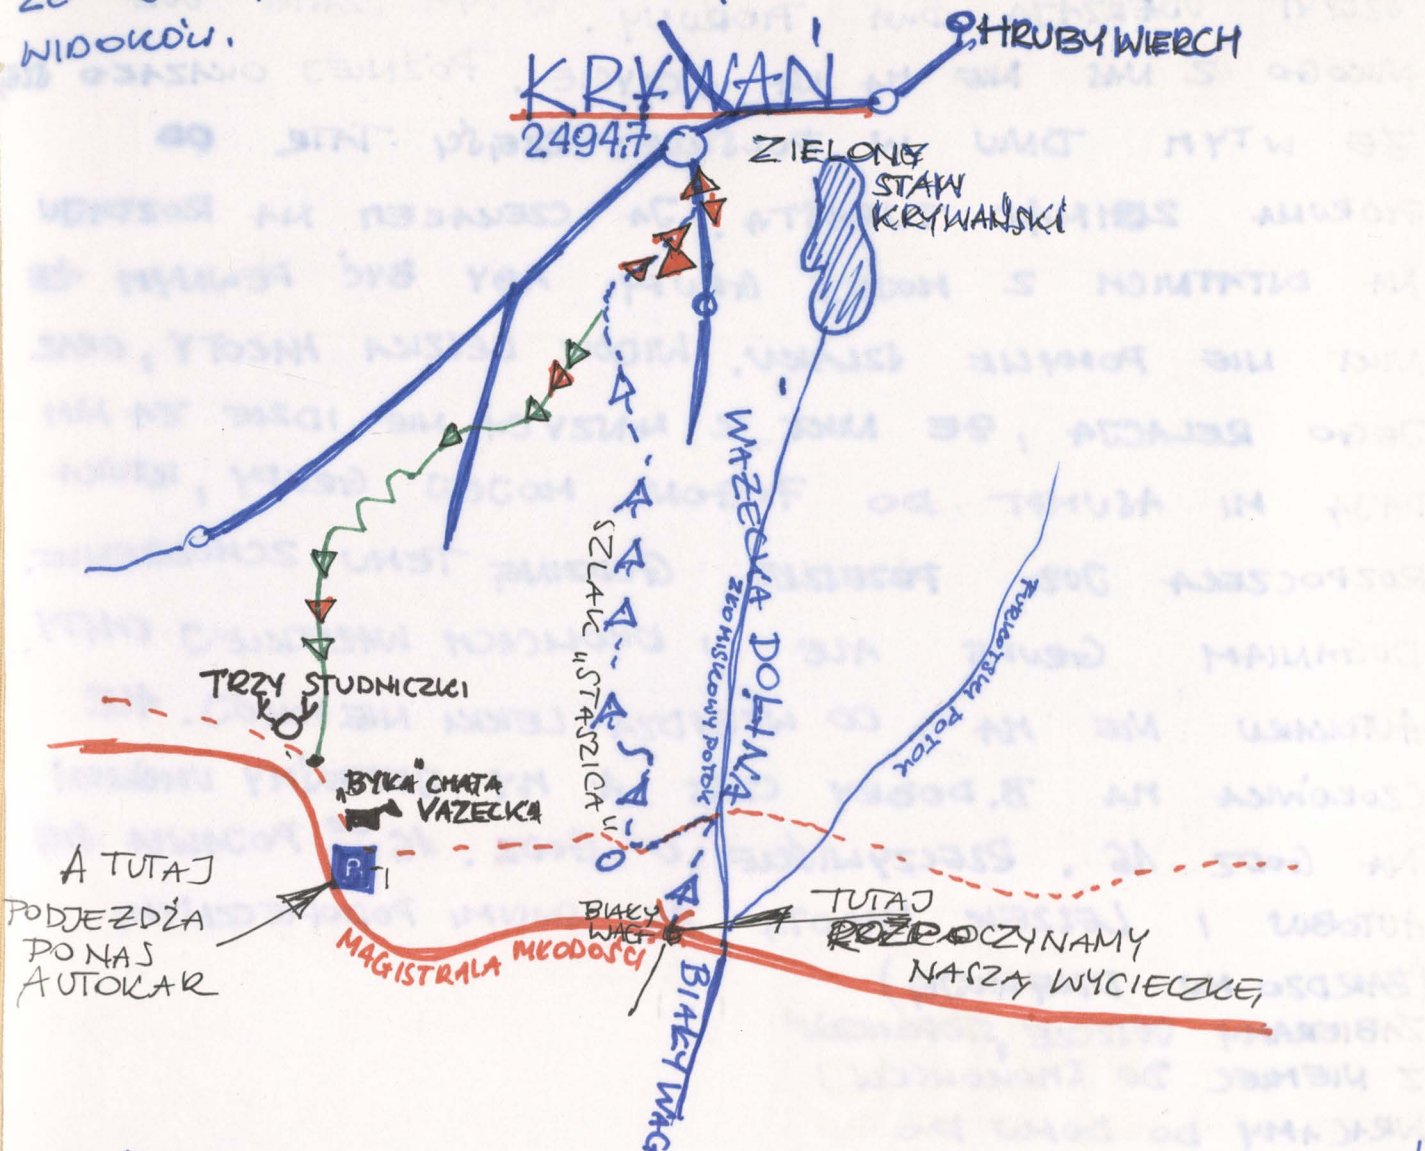 WIDOKÓW.
HRUBY WIERCH
KRYWAŃ
2494,7
ZIELONE
STAW
KRYWAŃSKI
WAŻECKA DOLINA
ZŁOMISKOWY POTOK
FURKOTSKI POTOK
SZLAK „STASZICA"
TRZY STUDNICZKI
„BYŁA" CHATA
VAZECKA
P
A TUTAJ
PODJEŻDŻA
PO NAS
AUTOKAR
MAGISTRALA MŁODOŚCI
BIAŁY
WAG
TUTAJ
ROZPOCZYNAMY
NASZĄ WYCIECZKĘ
BIAŁY WAG